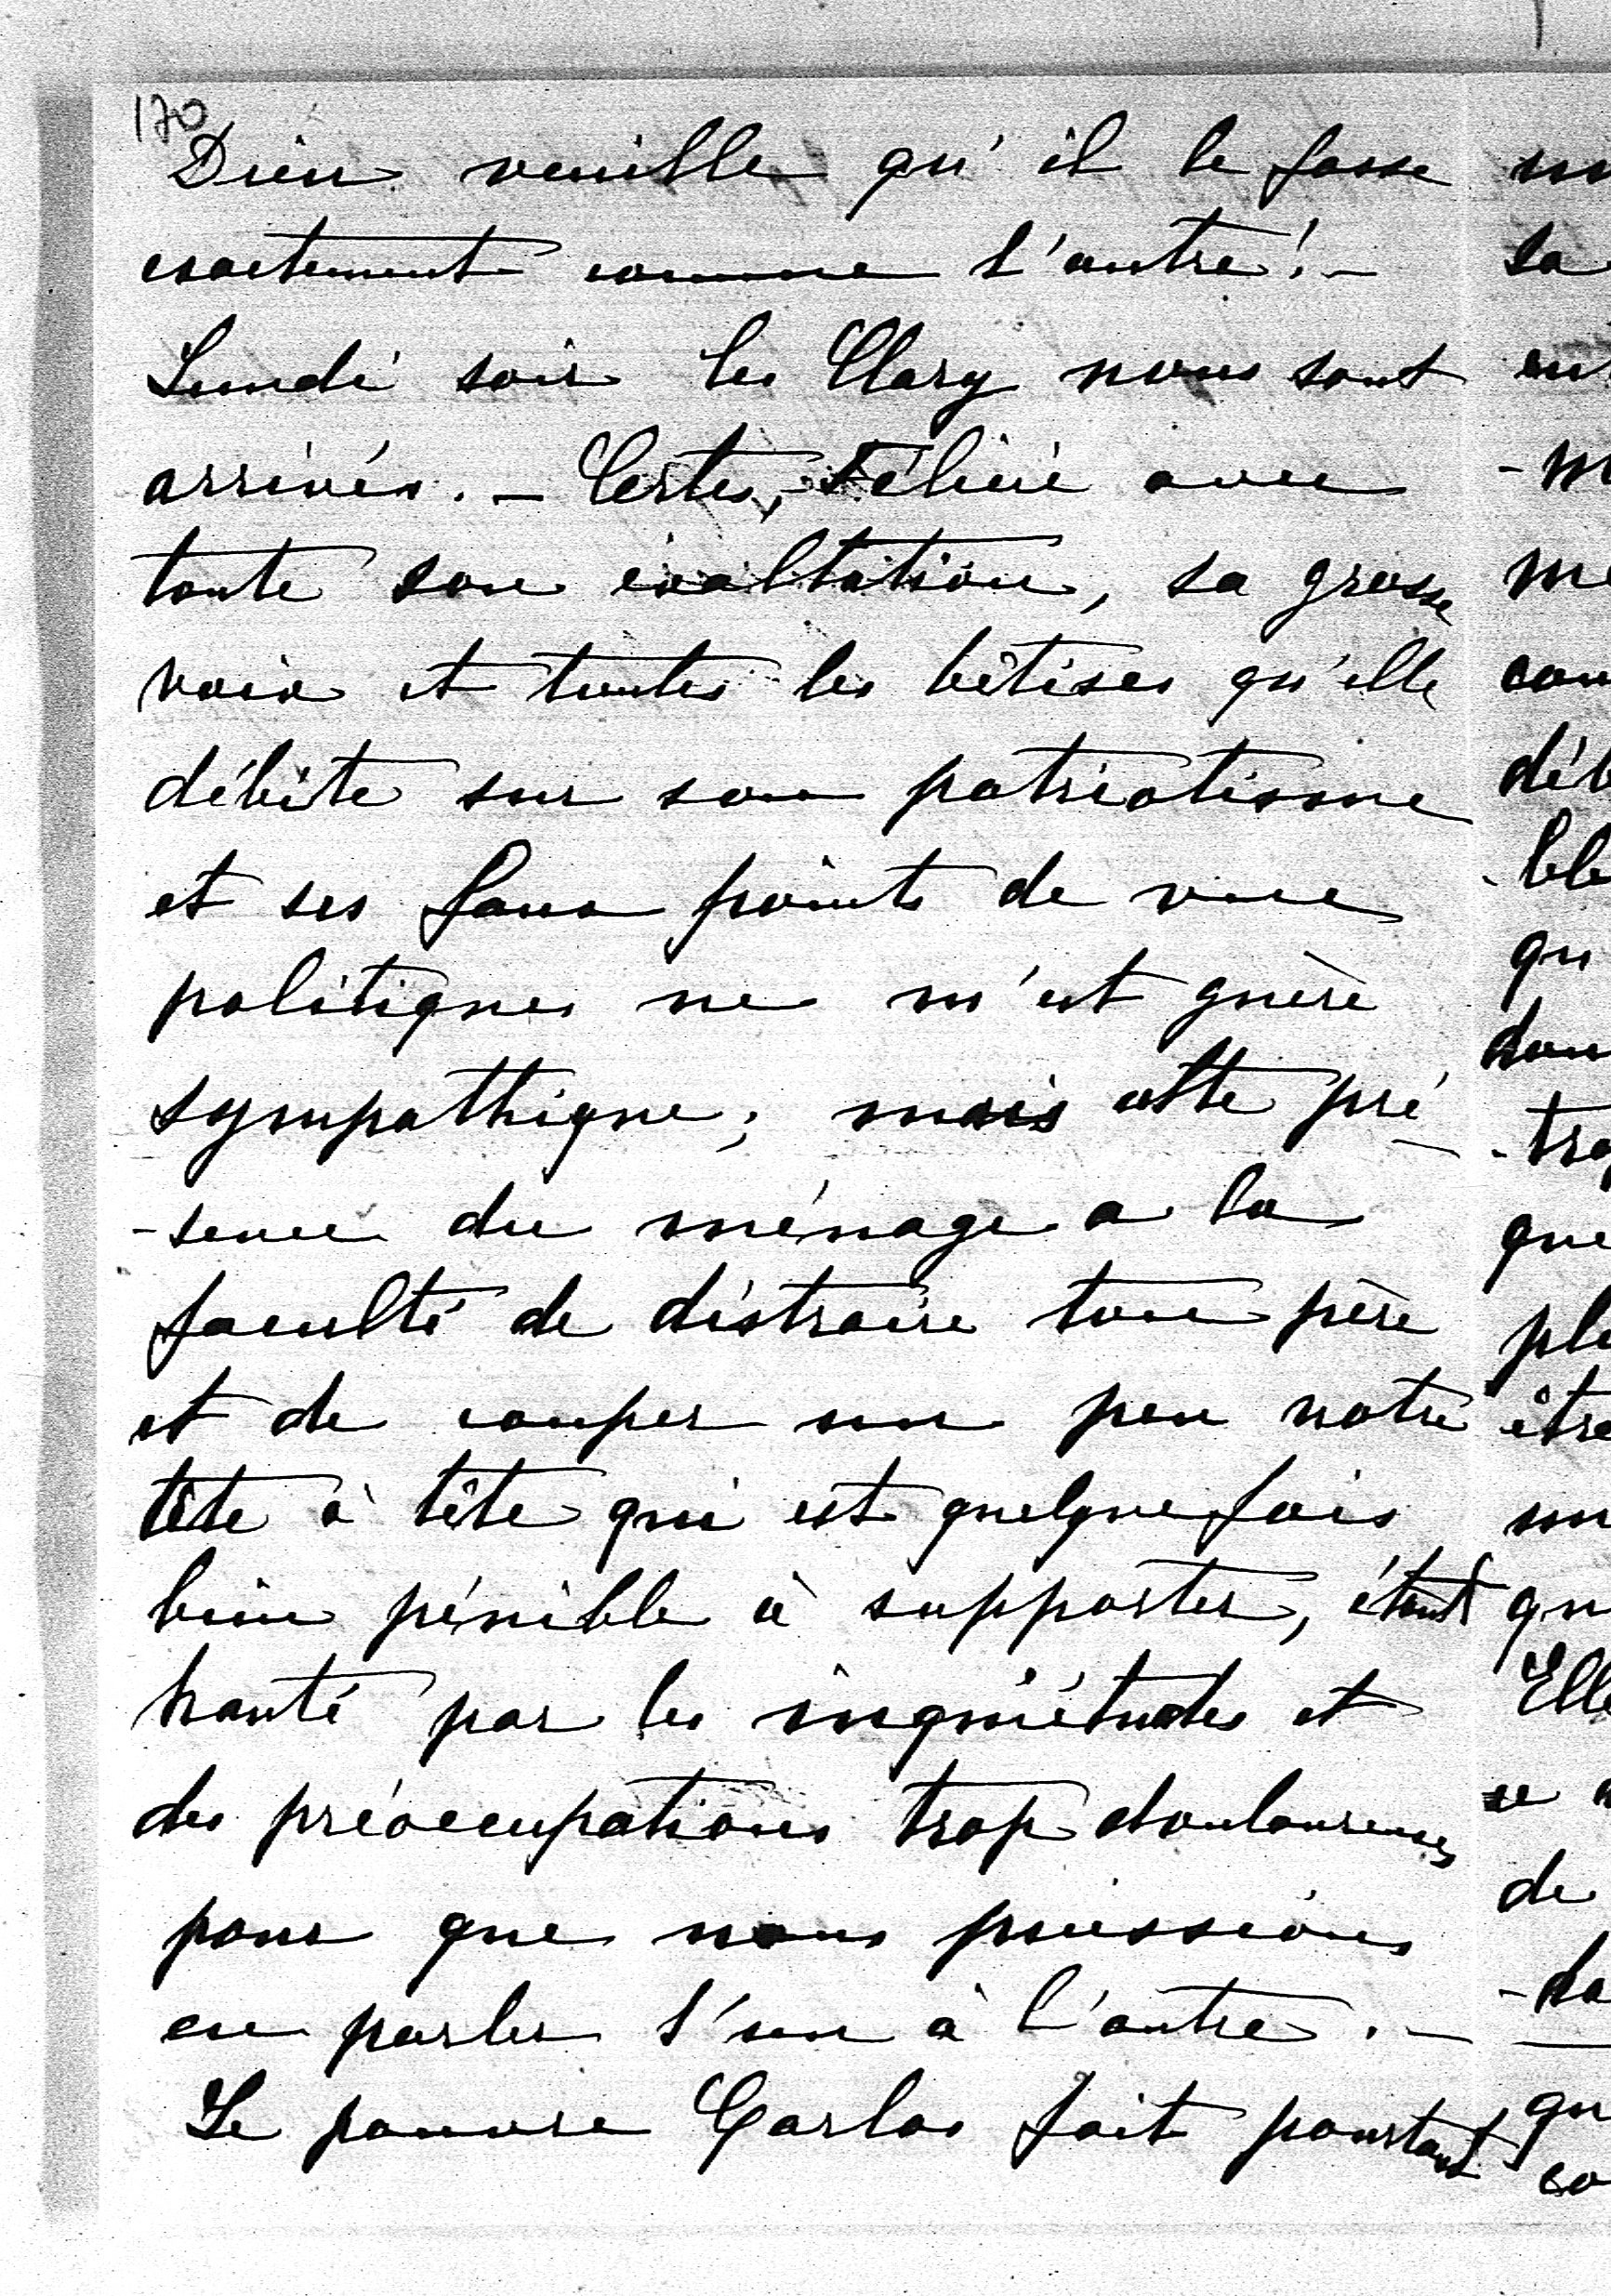 170
Dieu veuille qu'il le fasse
exactement comme l'autre! –
Lundi soir les Clary nous sont
arrivés. – Certes, Félicie avec
toute son exaltation, sa grosse
voix et toutes les bêtises qu'elle
débite sur son patriotisme
et ses faux points de vue
politiques ne m'est guère
sympathique; mais cette pré-
-sence du ménage a la
faculté de distraire ton père
et de couper un peu notre
tête à tête qui est quelquefois
bien pénible à supporter, étant
hanté par les inquiétudes et
des préoccupations trop douloureuses
pour que nous puissions
en parler l'un à l'autre. –
Le pauvre Carlos fait pourtant